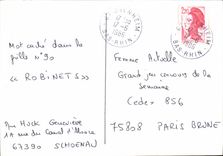 Mot caché dans la
grille n°90
« ROBINETS »
Mlle Huck Geneviève
67390 SCHOENAU
BAS-RHIN
Femme Actuelle
Grand jeu concours de la
Semaine
Cedex 856
75808 PARIS BRUNE